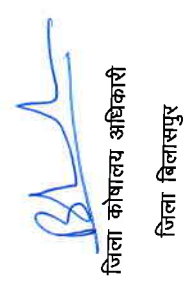 जिला कोषालय अधिकारी
जिला बिलासपुर